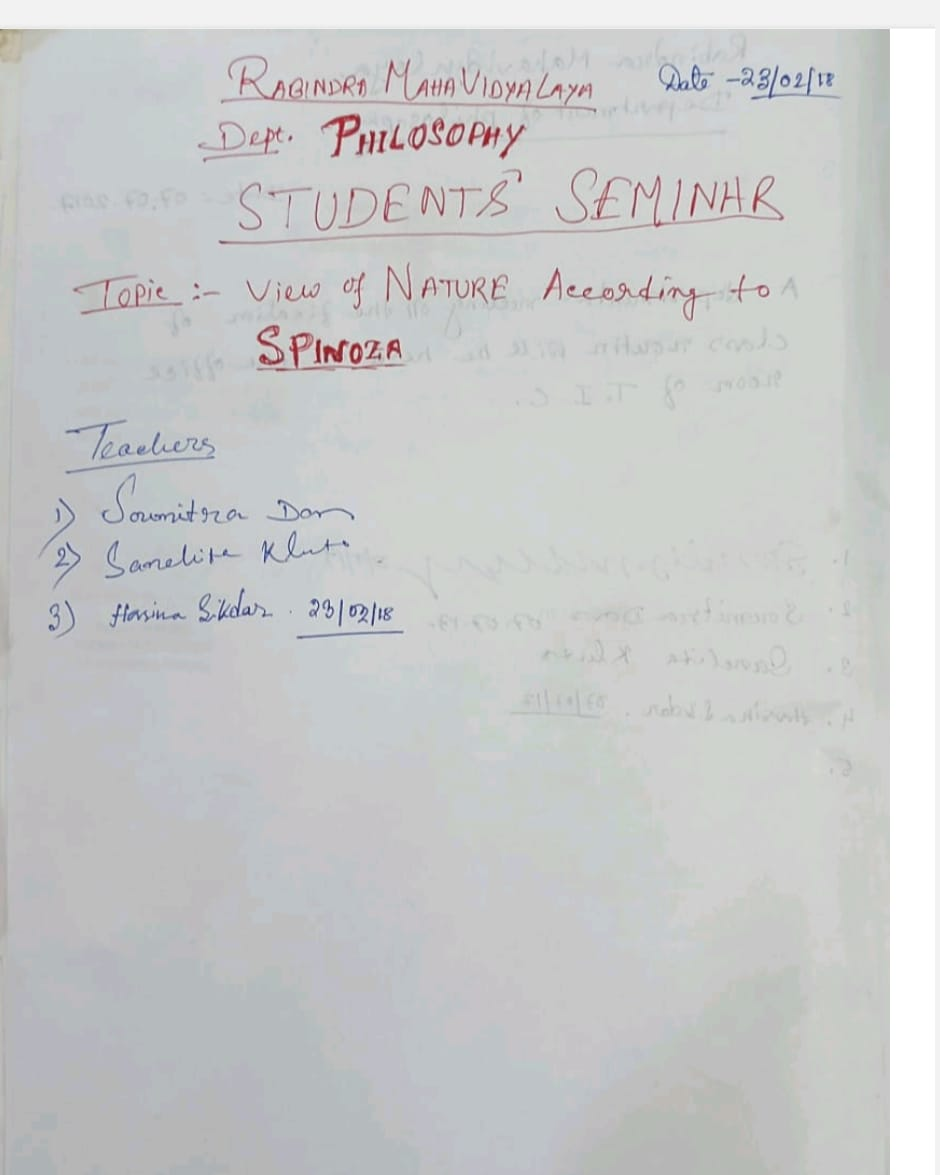 RABINDRA MAHAVIDYALAYA Date -23/02/18
Dept. PHILOSOPHY
STUDENTS' SEMINAR
Topic :- View of NATURE According to
SPINOZA
Teachers
1) Soumitra Dan
2) Sanchita
3) Hasina Sikdar. 23/02/18